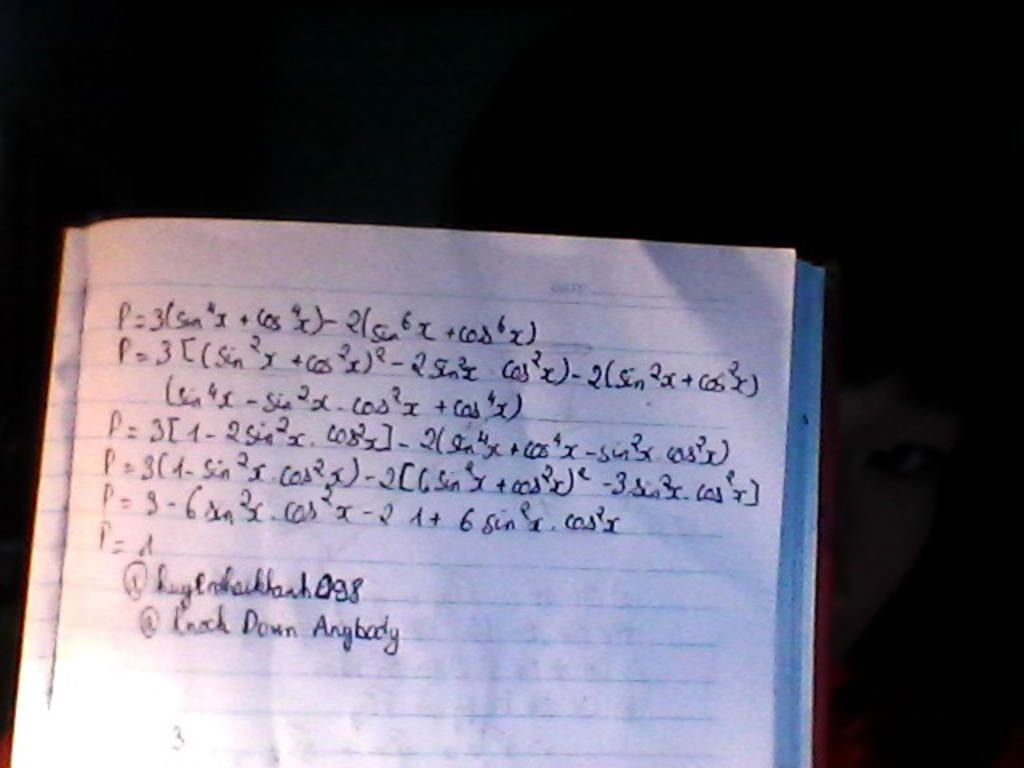 P = 3(sin⁴x + cos⁴x) - 2(sin⁶x + cos⁶x)
P = 3[(sin²x + cos²x)² - 2 sin²x cos²x) - 2(sin²x + cos²x)
(sin⁴x - sin²x . cos²x + cos⁴x)
P = 3[1 - 2sin²x . cos²x] - 2(sin⁴x + cos⁴x - sin²x cos²x)
P = 3(1 - sin²x . cos²x) - 2[(sin²x + cos²x)² - 3 sin²x . cos²x]
P = 3 - 6 sin²x . cos²x - 2 1 + 6 sin²x . cos²x
P = 1
@ Knock Down Anybody
3